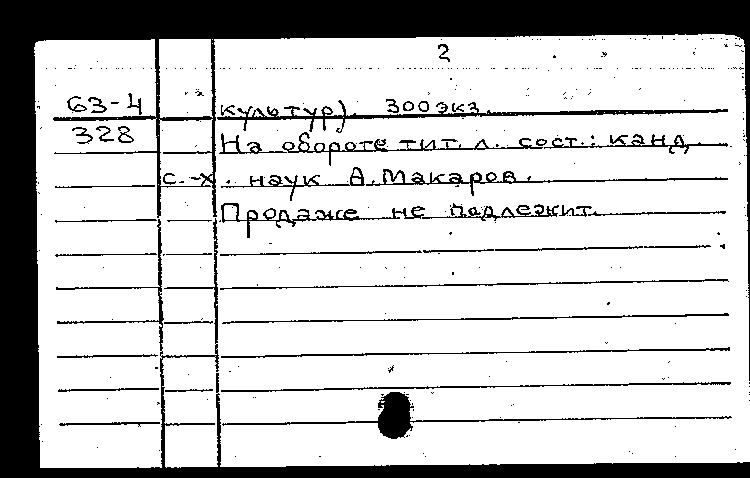 2
63-4 культур). 300 экз.
328 На обороте тит. л. сост.: канд.
с.-х. наук А. Макаров.
Продаже не падлежит.